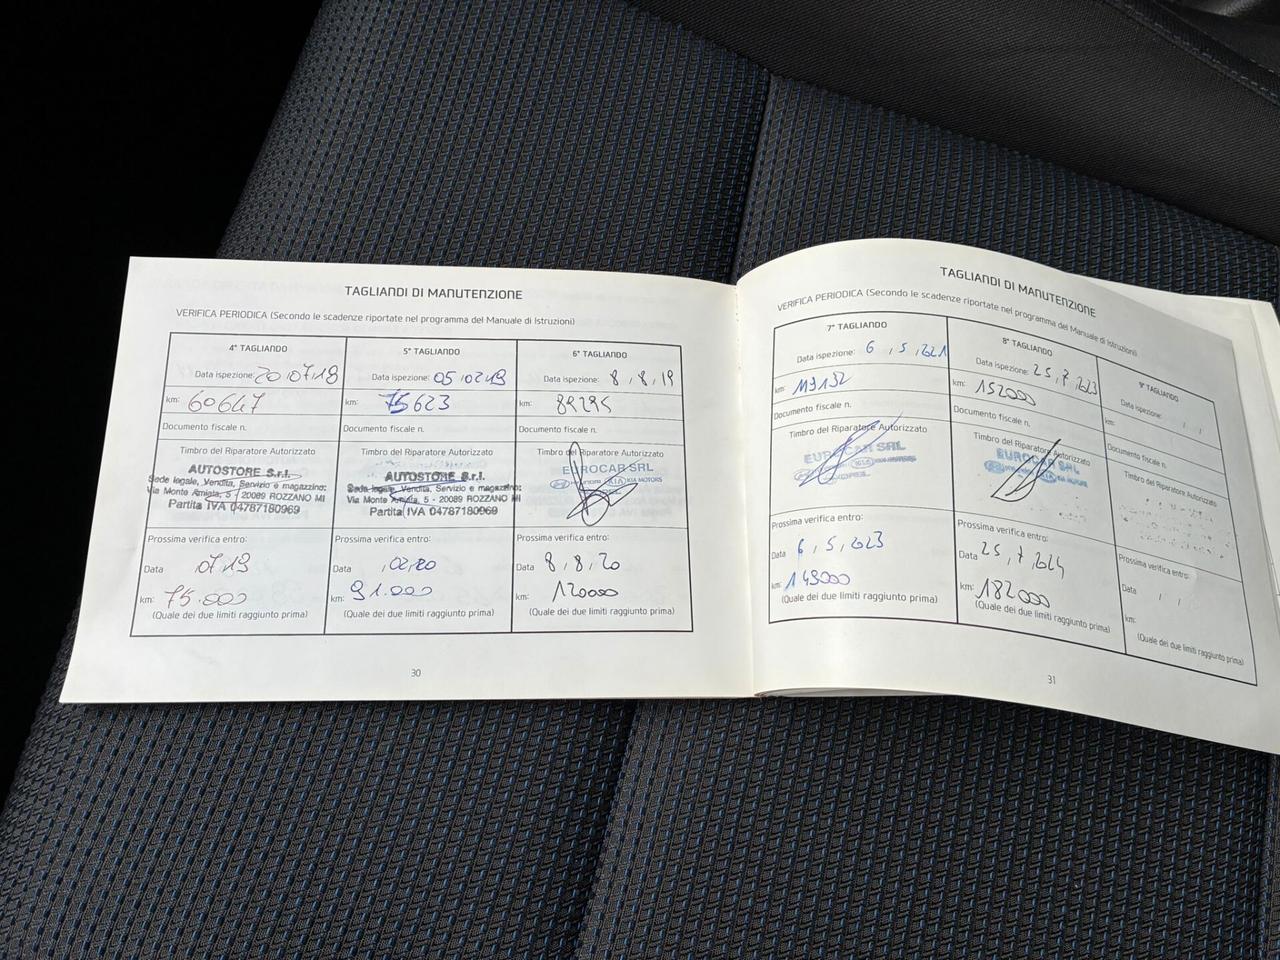 TAGLIANDI DI MANUTENZIONE
VERIFICA PERIODICA (Secondo le scadenze riportate nel programma del Manuale di Istruzioni)
4° TAGLIANDO
Data ispezione: 20.07.18
km: 60647
Documento fiscale n.
Timbro del Riparatore Autorizzato
AUTOSTORE S.r.l.
Sede legale, Vendita, Servizio e magazzino:
Via Monte Amiata, 5 - 20089 ROZZANO MI
Partita IVA 04787180969
Prossima verifica entro:
Data 07.19
km: 75.000
(Quale dei due limiti raggiunto prima)
5° TAGLIANDO
Data ispezione: 05.02.19
km: 75623
Documento fiscale n.
Timbro del Riparatore Autorizzato
AUTOSTORE S.r.l.
Sede legale, Vendita, Servizio e magazzino:
Via Monte Amiata, 5 - 20089 ROZZANO MI
Partita IVA 04787180969
Prossima verifica entro:
Data .02.20
km: 91.000
(Quale dei due limiti raggiunto prima)
6° TAGLIANDO
Data ispezione: 8.8.19
km: 89295
Documento fiscale n.
Timbro del Riparatore Autorizzato
EUROCAR SRL
KIA KIA MOTORS
Prossima verifica entro:
Data 8.8.20
km: 120000
(Quale dei due limiti raggiunto prima)
30
TAGLIANDI DI MANUTENZIONE
VERIFICA PERIODICA (Secondo le scadenze riportate nel programma del Manuale di Istruzioni)
7° TAGLIANDO
Data ispezione: 6.5.2021
km:
Documento fiscale n.
Timbro del Riparatore Autorizzato
EUROCAR SRL
KIA KIA MOTORS
Prossima verifica entro:
Data 6.5.2023
km: 149000
(Quale dei due limiti raggiunto prima)
8° TAGLIANDO
Data ispezione: 25.7.2023
km: 152000
Documento fiscale n.
Timbro del Riparatore Autorizzato
EUROCAR SRL
KIA KIA MOTORS
Prossima verifica entro:
Data 25.7.2024
km: 182000
(Quale dei due limiti raggiunto prima)
9° TAGLIANDO
Data ispezione: . .
km:
Documento fiscale n.
Timbro del Riparatore Autorizzato
Prossima verifica entro:
Data . .
km:
(Quale dei due limiti raggiunto prima)
31